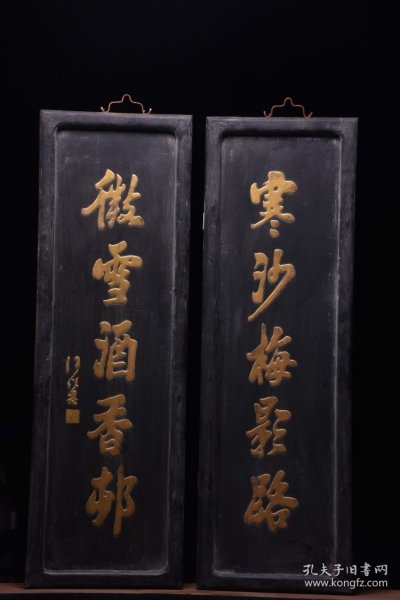 寒沙梅影路
微雪酒香邨
孔夫子旧书网
www.kongfz.com